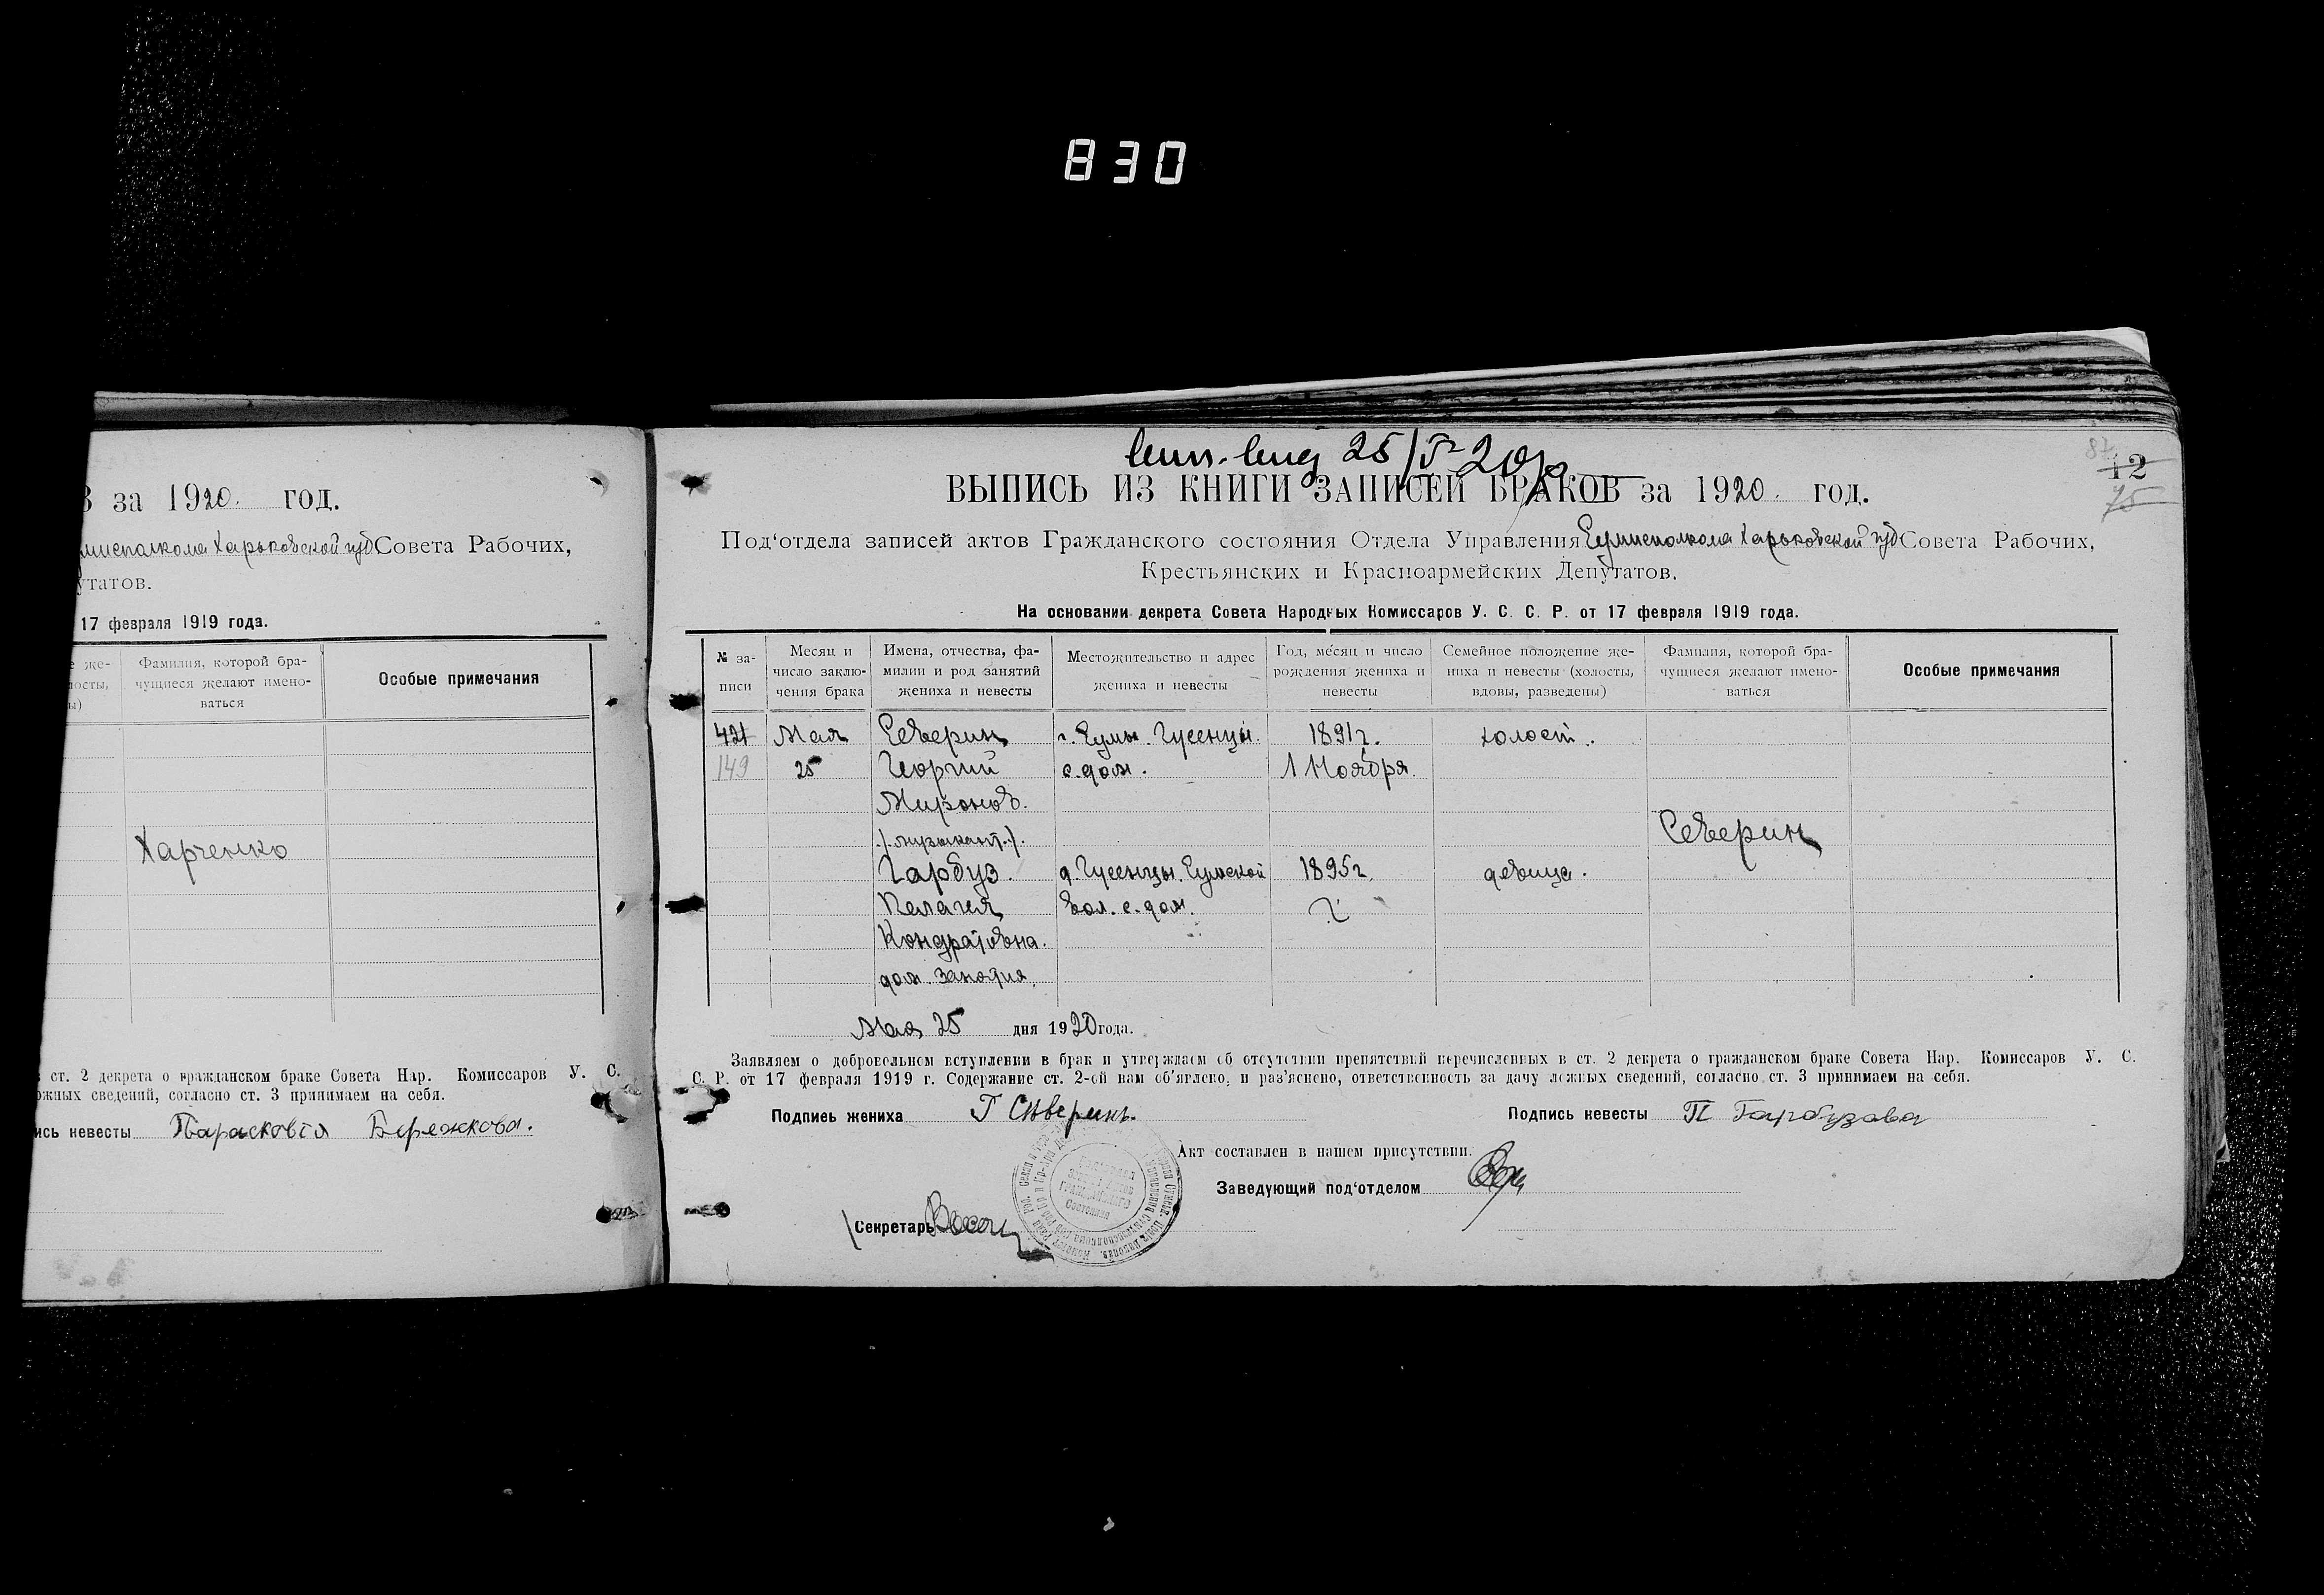 830
за 1920 год.
Харьковской губ Совета Рабочих,
утатов.
17 февраля 1919 года.
Фамилия, которой бра-
чущиеся желают имено-
ваться
Особые примечания
Харченко
ст. 2 декрета о гражданском браке Совета Нар. Комиссаров У. С.
ожных сведений, согласно ст. 3 принимаем на себя.
ись невесты Парасковія Бережкова.
25/V-20
82
12
75
ВЫПИСЬ ИЗ КНИГИ ЗАПИСЕЙ БРАКОВ за 1920 год.
Под'отдела записей актов Гражданского состояния Отдела Управления Сумисполкома Харьковской губ Совета Рабочих,
Крестьянских и Красноармейских Депутатов.
На основании декрета Совета Народных Комиссаров У. С. С. Р. от 17 февраля 1919 года.
№ за-
писи
Месяц и
число заклю-
чения брака
Имена, отчества, фа-
милии и род занятий
жениха и невесты
Местожительство и адрес
жениха и невесты
Год, месяц и число
рождения жениха и
невесты
Семейное положение же-
ниха и невесты (холосты,
вдовы, разведены)
Фамилия, которой бра-
чущиеся желают имено-
ваться
Особые примечания
421 Мая Северин г. Сумы. Гусенцы 1891 г. холост.
149 25 Георгий с. дом. 1 Ноября
Миронов.
/музыкант./.
Северин
Гарбуз д. Гусенцы. Сумской 1895 г. девица.
Пелагея вол. с. дом. ?
Кондратьевна.
дом. занятия
Мая 25 дня 1920 года.
Заявляем о добровольном вступлении в брак и утверждаем об отсутствии препятствий перечисленных в ст. 2 декрета о гражданском браке Совета Нар. Комиссаров У. С.
С. Р. от 17 февраля 1919 г. Содержание ст. 2-ой нам об'явлено, и раз'яснено, ответственность за дачу ложных сведений, согласно ст. 3 принимаем на себя.
Подпись жениха Г Съверинъ.
Подпись невесты П Гарбузова
Акт составлен в нашем присутствии.
Заведующий под'отделом
Секретарь